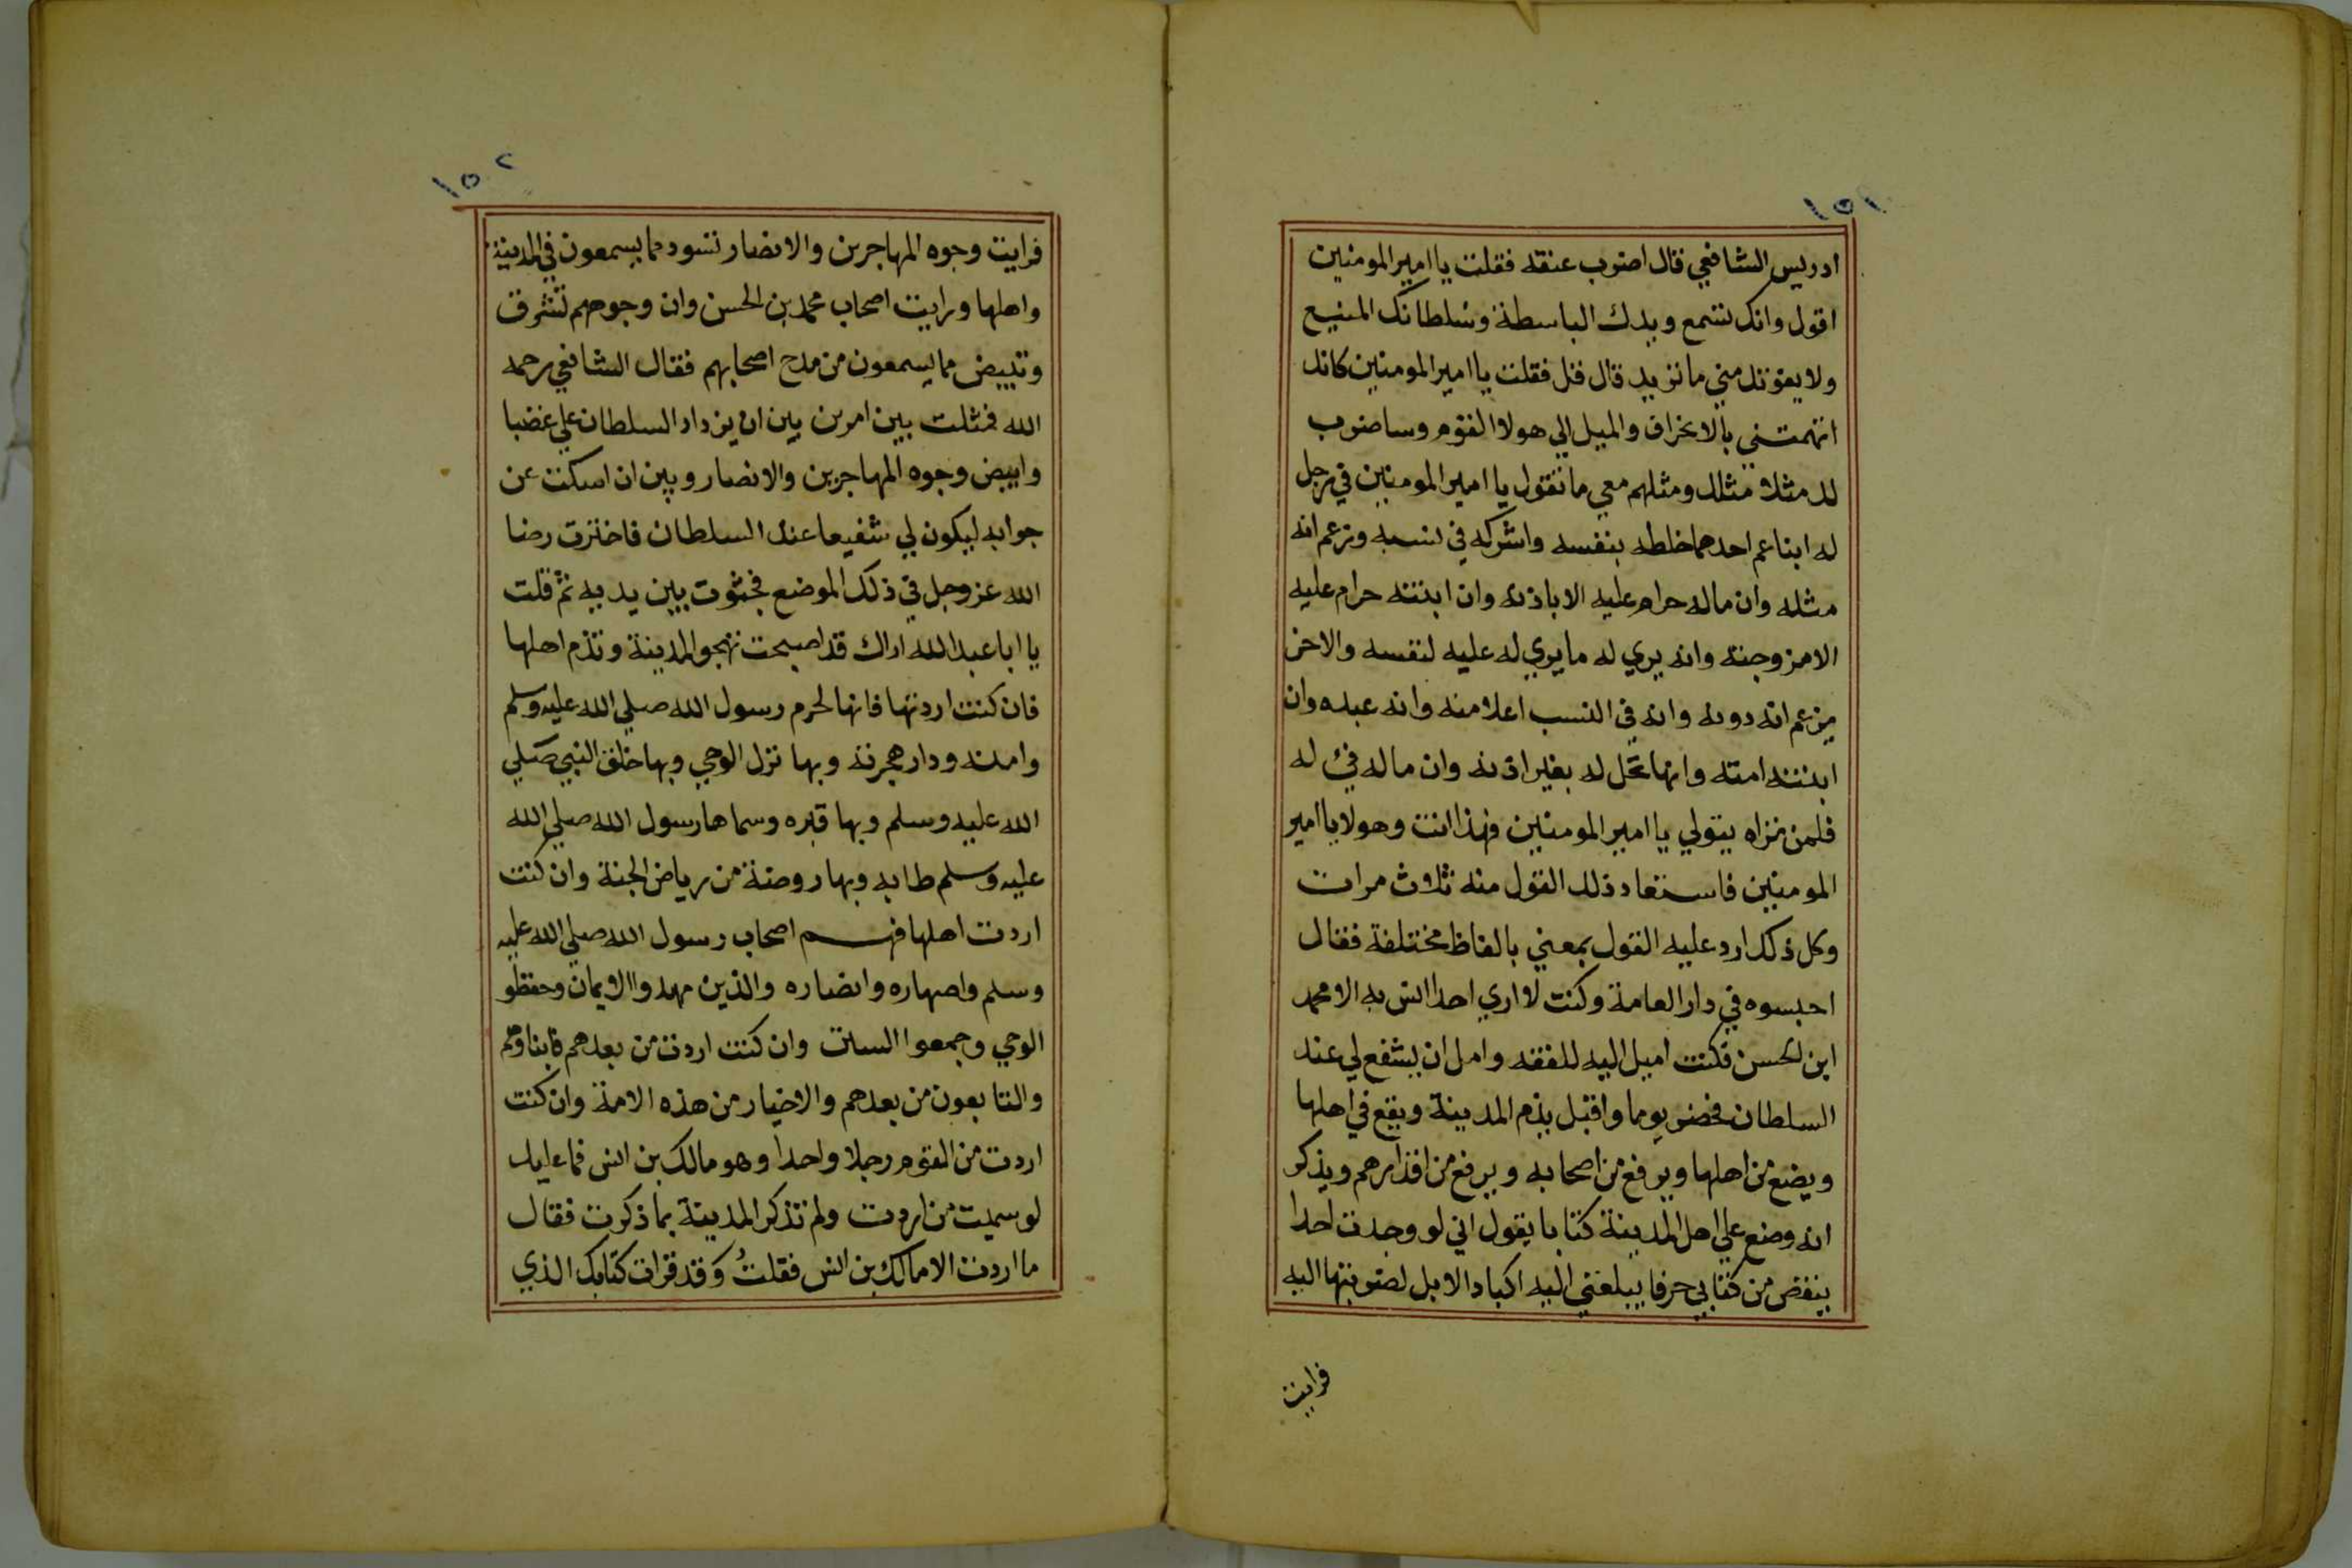 ١٥١
ادريس الشافعي قال اضرب عنقه فقلت يا امير المومنين
اقول وانك تسمع ويدك الباسطة وسُلطانك المنيع
ولا يفوتك مني ما تريد قال قل فقلت يا امير المومنين كانك
اتهمتني بالانحراف والميل الي هولا القوم وساضرب
لك مثلا مثلك ومثلهم معي ما تقول يا امير المومنين في رجل
له ابنا عم احدهما خلطه بنفسه واشركه في نسبه وزعم انه
مثله وان ماله حرام عليه الا باذنه وان ابنته حرام عليه
الا مزوجته وانه يري له ما يري له عليه لنفسه والاخر
يزعم انه دونه وانه في النسب اعلا منه وانه عبده وان
ابنته امته وانها تحل له بغير اذنه وان ماله فئ له
فلمن تراه يتولي يا امير المومنين فهذا انت وهولا يا امير
المومنين فاستعاد ذلك القول منه ثلاث مرات
وكل ذلك ارد عليه القول بمعني بالفاظ مختلفة فقال
احبسوه في دار العامة وكنت لا اري احدا انس به الا محمد
ابن الحسن فكنت اميل اليه للفقه وامل ان يشفع لي عند
السلطان فحضر يوما واقبل يذم المدينة ويقع في اهلها
ويضع من اهلها ويرفع من اصحابه ويرفع من اقدارهم ويذكر
انه وضع علي اهل المدينة كتابا يقول اني لو وجدت احدا
ينقض من كتابي حرفا يبلغني اليه اكباد الابل لضربتها اليه
فرايت
١٥٢
فرايت وجوه المهاجرين والانصار تسود مما يسمعون في المدينة
واهلها ورايت اصحاب محمد بن الحسن وان وجوههم تشرق
وتبيض مما يسمعون من مدح اصحابهم فقال الشافعي رحمه
الله فمثلت بين امرين بين ان يزداد السلطان علي غضبا
وابيض وجوه المهاجرين والانصار وبين ان اسكت عن
جوابه ليكون لي شفيعا عند السلطان فاخترت رضا
الله عز وجل في ذلك الموضع فجثوت بين يديه ثم قلت
يا ابا عبد الله اراك قد اصبحت تهجو المدينة وتذم اهلها
فان كنت اردتها فانها لحرم رسول الله صلي الله عليه وسلم
وامنه ودار هجرته وبها نزل الوحي وبها خلق النبي صلي
الله عليه وسلم وبها قبره وسماها رسول الله صلي الله
عليه وسلم طابه وبها روضة من رياض الجنة وان كنت
اردت اهلها فهم اصحاب رسول الله صلي الله عليه
وسلم واصهاره وانصاره والذين مهدوا الايمان وحفظو
الوحي وجمعوا السنن وان كنت اردت من بعدهم فابناوهم
والتابعون من بعدهم والاخيار من هذه الامة وان كنت
اردت من القوم رجلا واحدا وهو مالك بن انس فما عليك
لو سميت من اردت ولم تذكر المدينة بما ذكرت فقال
ما اردت الا مالك بن انس فقلتُ وقد قرات كتابك الذي